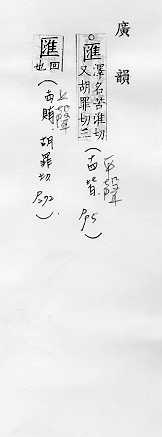 廣韻
匯 澤名苦淮切
又胡罪切三
平聲
(皆 P95)
匯 回也
上聲
(賄 胡罪切 P272)